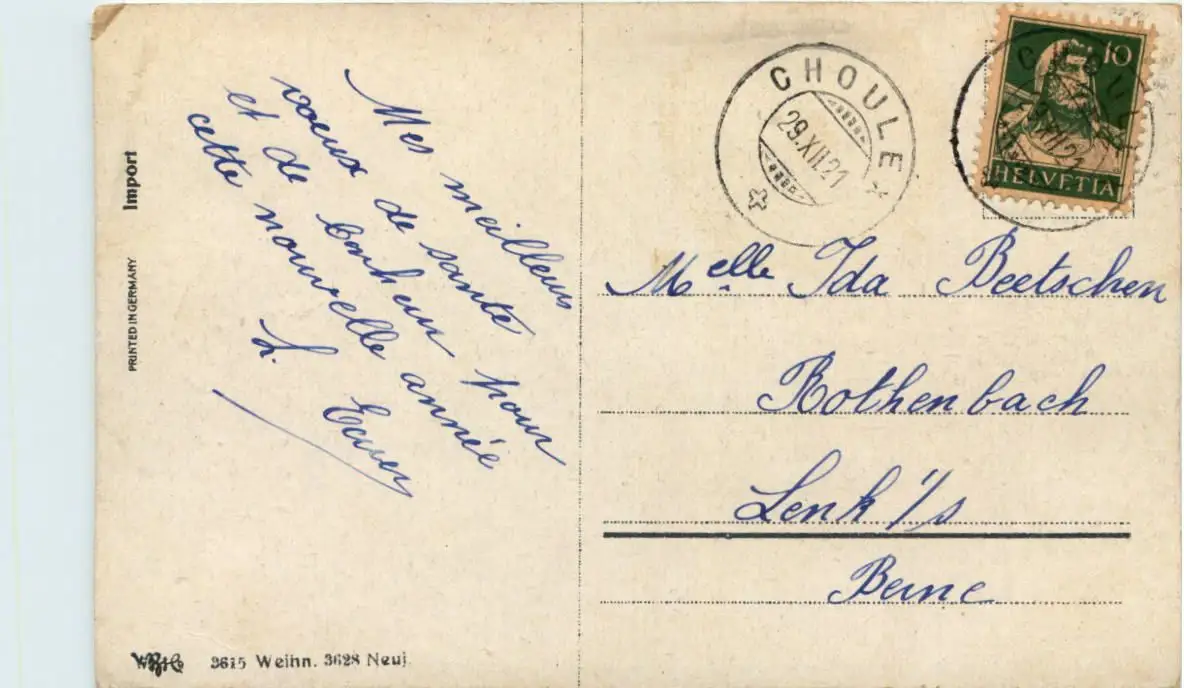 Import
PRINTED IN GERMANY
Mes meilleurs
voeux de santé
et de bonheur pour
cette nouvelle année
L.
3615 Weihn. 3628 Neuj.
CHOULEX
29.XII.21
10
HELVETIA
Melle Ida Beetschen
Rothenbach
Lenk i/s
Berne